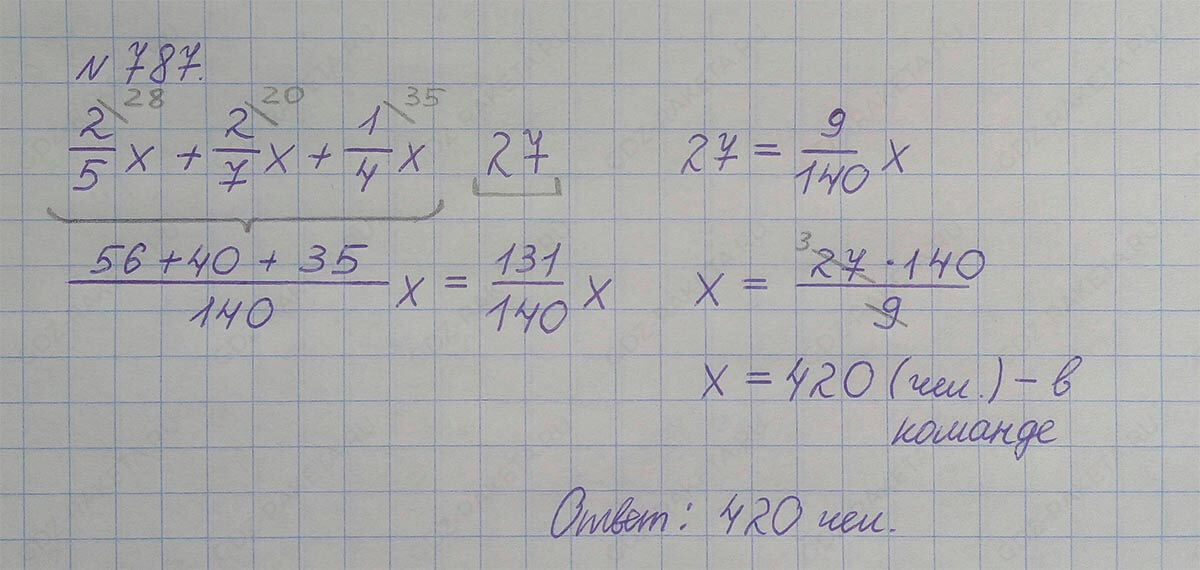 № 787.
2/5 \28 x + 2/7 \20 x + 1/4 \35 x 27
(56 + 40 + 35)/140 x = 131/140 x
27 = 9/140 x
x = 3 27 · 140 / 9
x = 420 (чел.) – в
команде
Ответ: 420 чел.